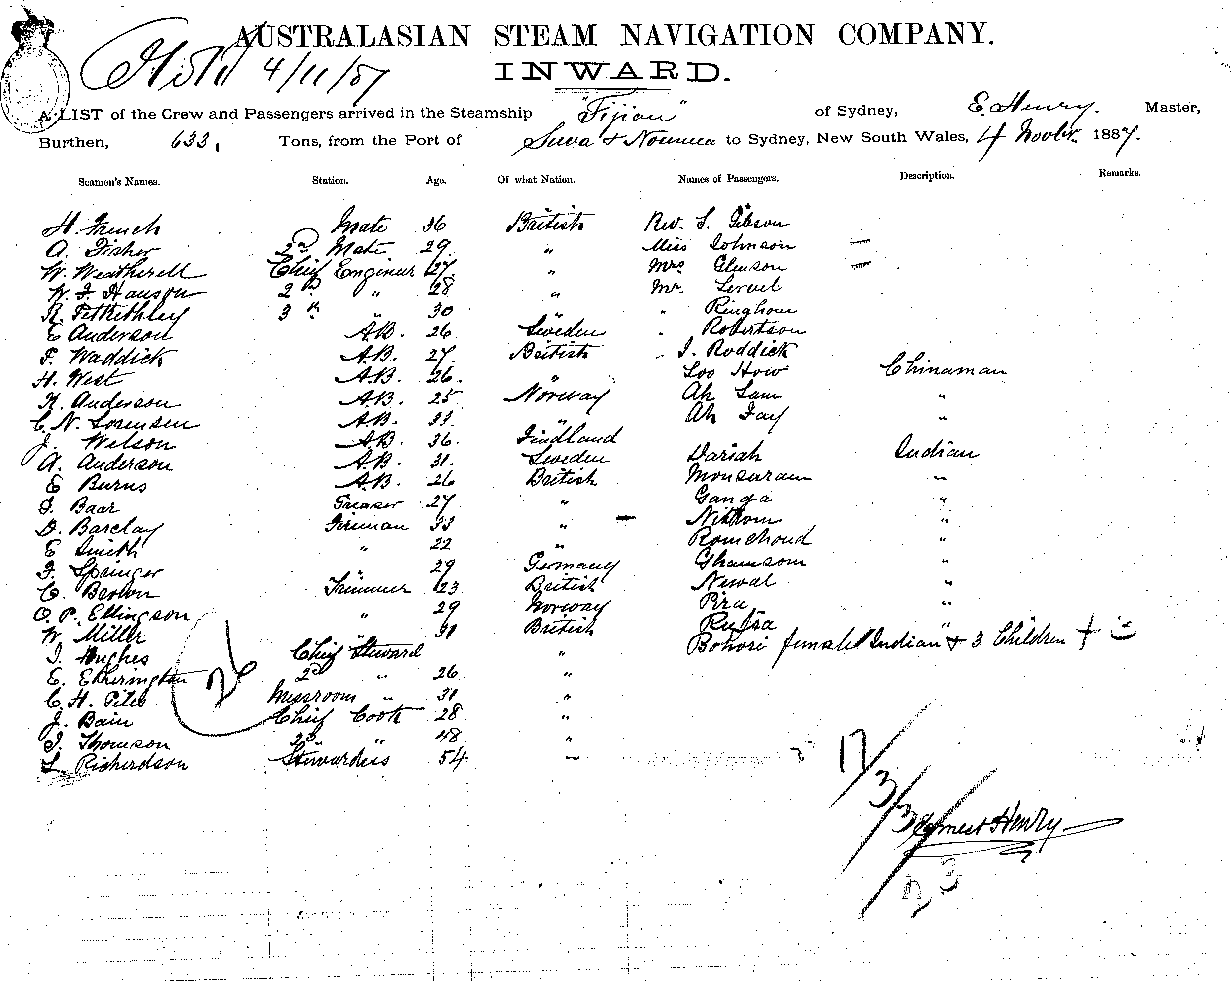 AUSTRALASIAN STEAM NAVIGATION COMPANY.
4/11/87
INWARD.
A LIST of the Crew and Passengers arrived in the Steamship "Fijian" of Sydney, E. Henry. Master,
Burthen, 633, Tons, from the Port of Suva & Noumea to Sydney, New South Wales, 4 Novbr. 1887.
Seamen's Names. Station. Age. Of what Nation. Names of Passengers. Description. Remarks.
H. French Mate 36 British Rev. Gibson
A. Fisher 2nd Mate 29 " Miss Johnson
W. Weatherell Chief Engineer 27 " Mrs Gleeson
W. J. Hanson 2nd " 28 " Mr.
R. Fetkethley 3rd " 30 "
E Anderson A.B. 26 Sweden " Robertson
F. Waddick A.B. 27 British " J. Roddick
H. West A.B. 26 " Loo How Chinaman
A. Anderson A.B. 25 Norway Ah Sam "
C. N. Sorensen A.B. 33 " Ah Fay "
J. Wilson A.B. 36 Findland
A. Anderson A.B. 31 Sweden Dariah Indian
E Burns A.B. 26 British Monsaram "
J. Baar Greaser 27 " Ganga "
D. Barclay Fireman 33 " "
E Smith " 22 " Romchoud "
F. Springer " 29 Germany Ghamsom "
C. Brown Trimmer 23 British Nawal "
O. P. Ellingson " 29 Norway Pira "
W. Miller " 31 British "
J. Hughes Chief Steward " Bohori female Indian & 3 Children
E. Etherington 2nd " 26 "
C. H. Pile Messroom " 31 "
J. Bain Chief Cook 28 "
J. Thomson 2nd " 48 "
L. Richerdson Stewardess 54 "
26
17/3/3
Ernest Henry
23